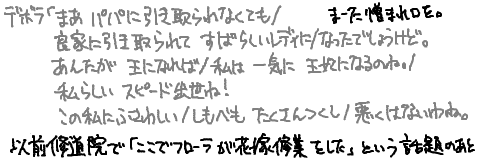 デボラ「まあ パパに引き取られなくても/ まーた憎まれ口を。
良家に引き取られて すばらしいレディに/なったでしょうけど。
あんたが 王になれば/私は 一気に 王妃になるのね。/
私らしい スピード出世ね!
この私にふさわしい/しもべも たくさんつくし/悪くはないわね。
以前修道院で「ここでフローラが花嫁修業をした」という話題のあと